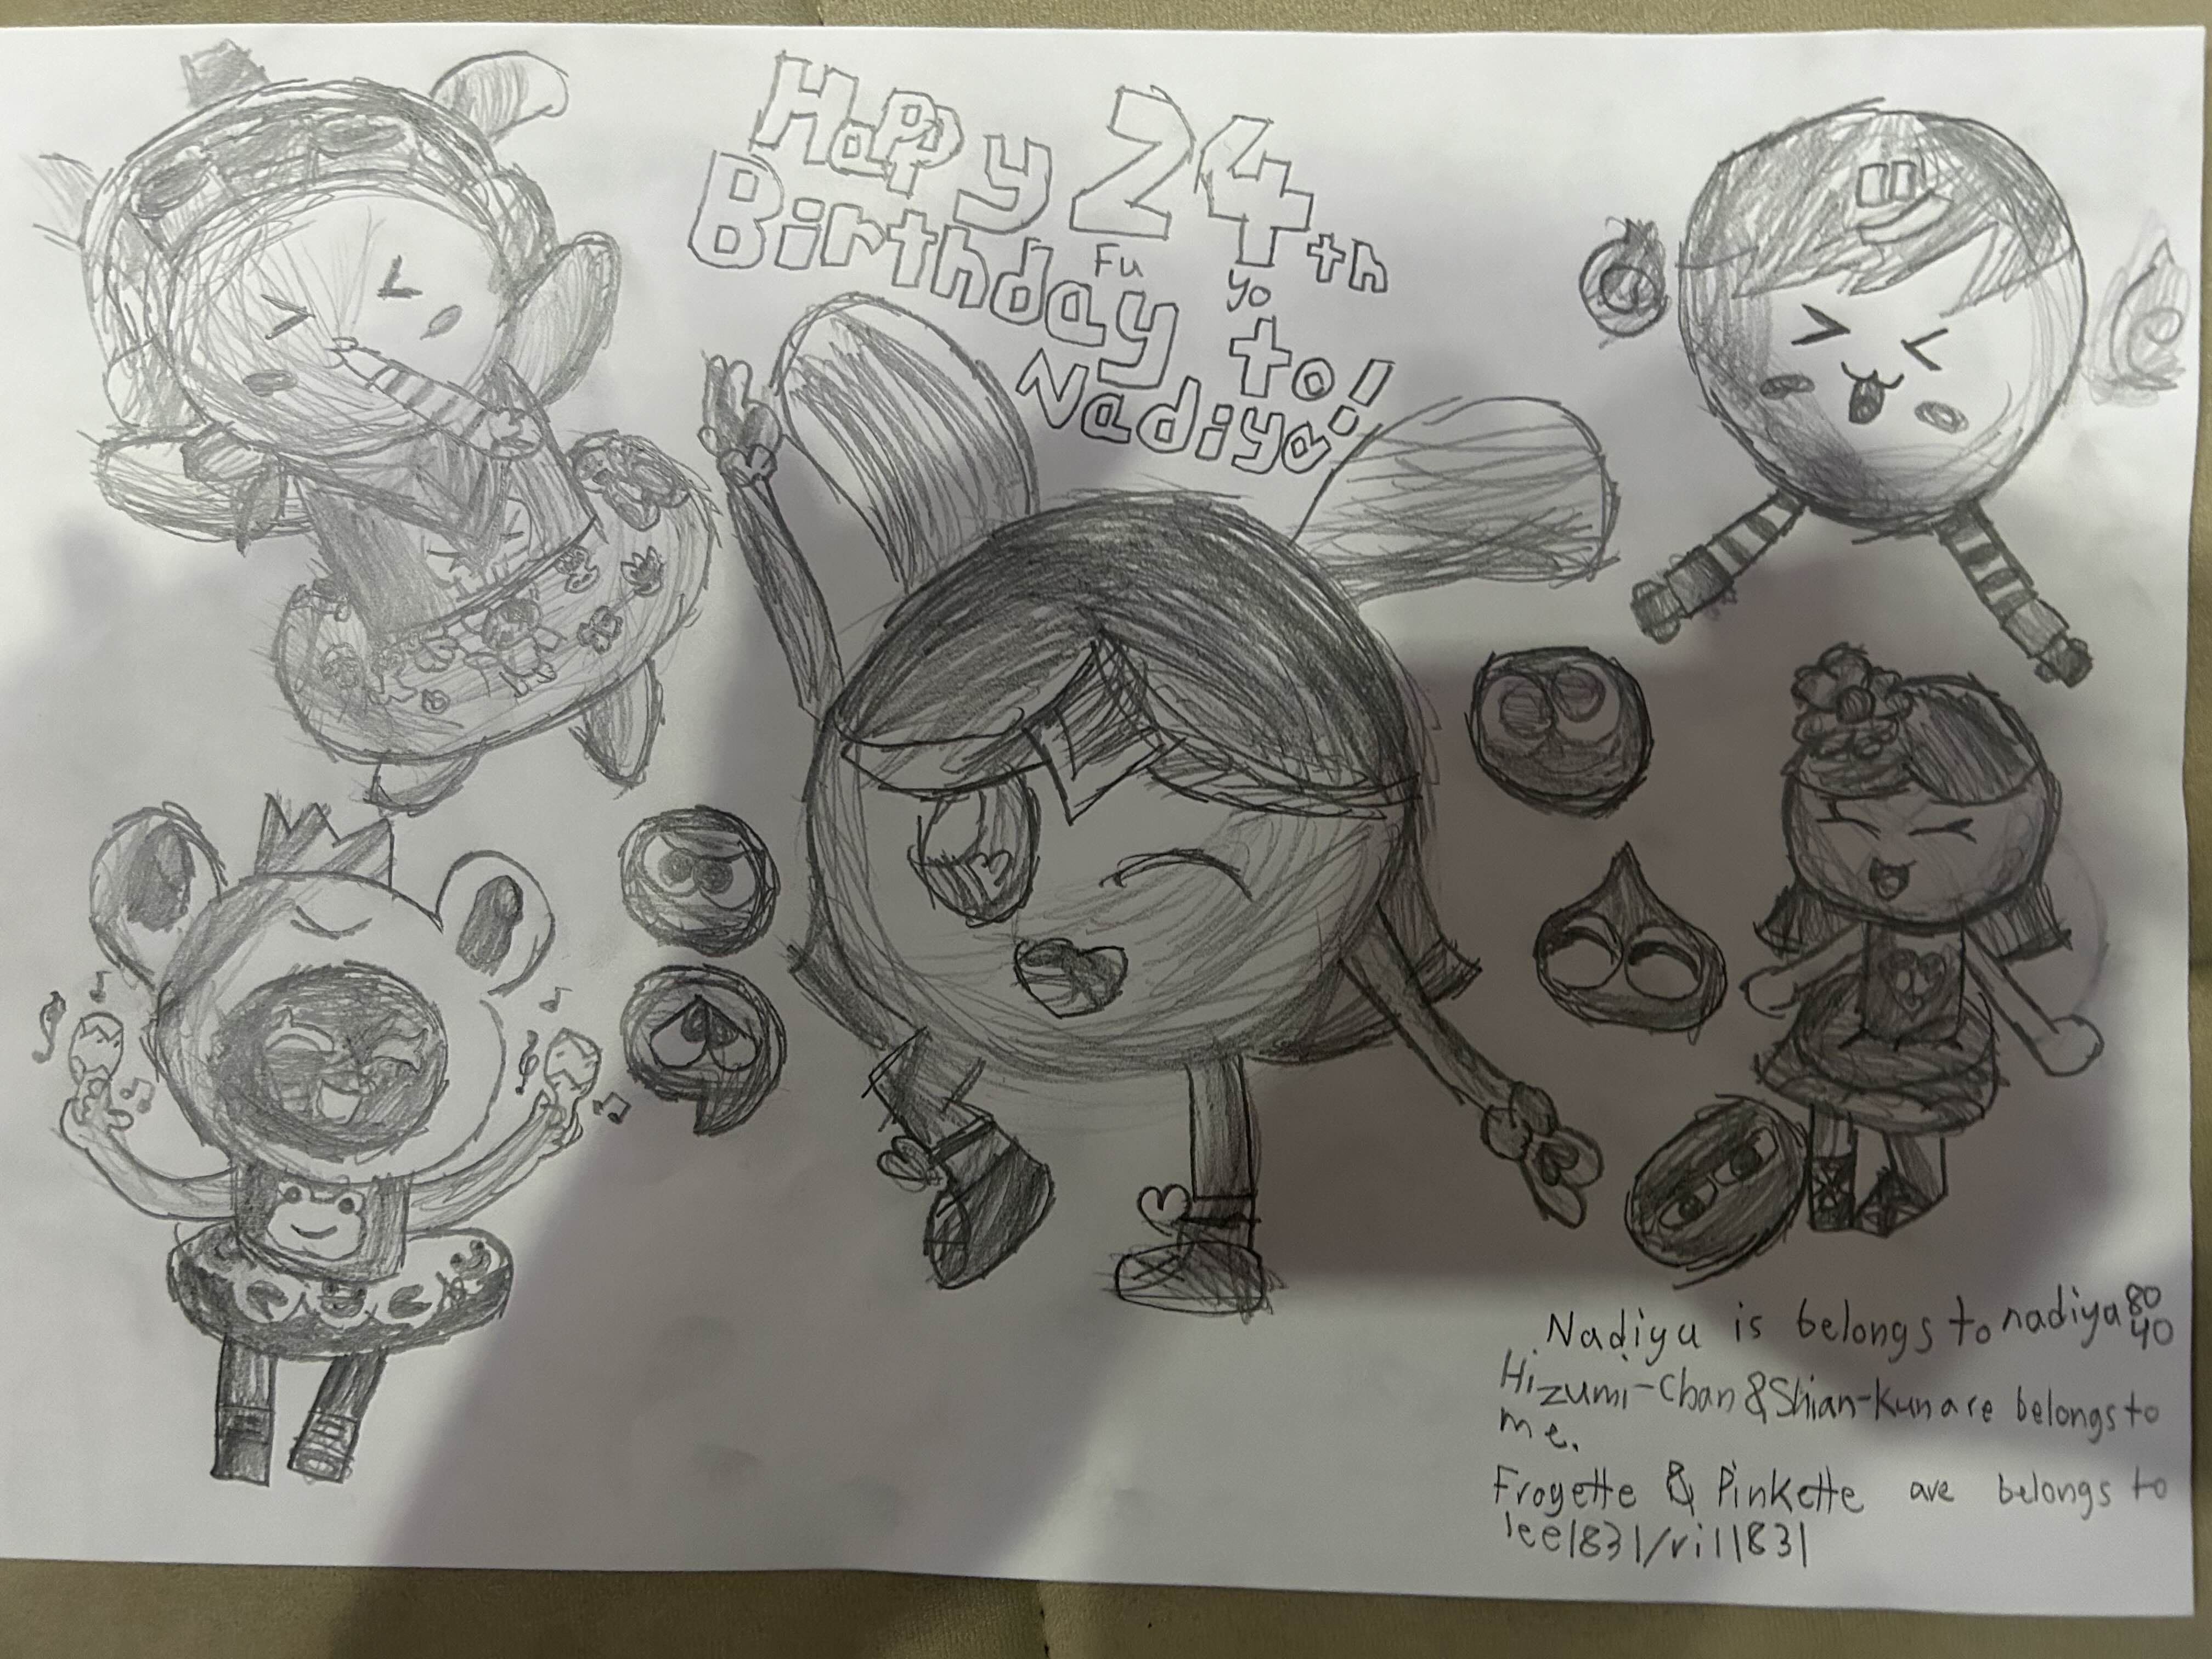 Happy 24th
Birthday to
Fu yo
Nadiya!
Nadiya is belongs to nadiya80
40
Hizumi-Chan & Shian-Kun are belongs to
me.
Frogette & Pinkette are belongs to
lee1831/ril1831